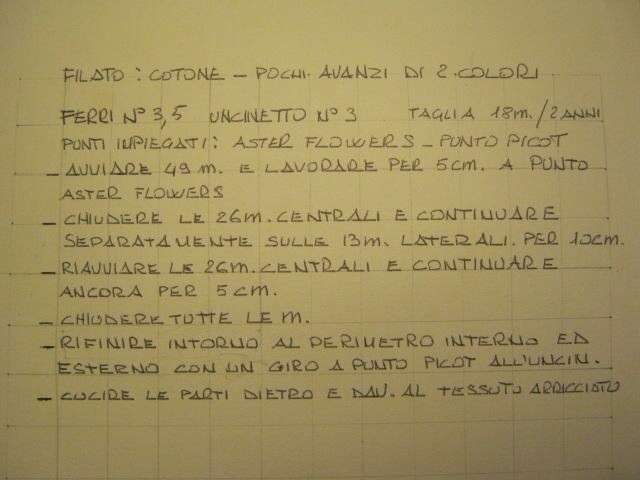 FILATO: COTONE - POCHI AVANZI DI 2 COLORI
FERRI N° 3,5 UNCINETTO N° 3 TAGLIA 18m./2 ANNI
PUNTI INPIEGATI: ASTER FLOWERS - PUNTO PICOT
- AVVIARE 49 m. E LAVORARE PER 5cm. A PUNTO
ASTER FLOWERS
- CHIUDERE LE 26m. CENTRALI E CONTINUARE
SEPARATAMENTE SULLE 13m. LATERALI. PER 10cm.
- RIAVVIARE LE 26m. CENTRALI E CONTINUARE
ANCORA PER 5 cm.
- CHIUDERE TUTTE LE m.
- RIFINIRE INTORNO AL PERIMETRO INTERNO ED
ESTERNO CON UN GIRO A PUNTO PICOT ALL'UNCIN.
- CUCIRE LE PARTI DIETRO E DAV. AL TESSUTO ARRICCIATO